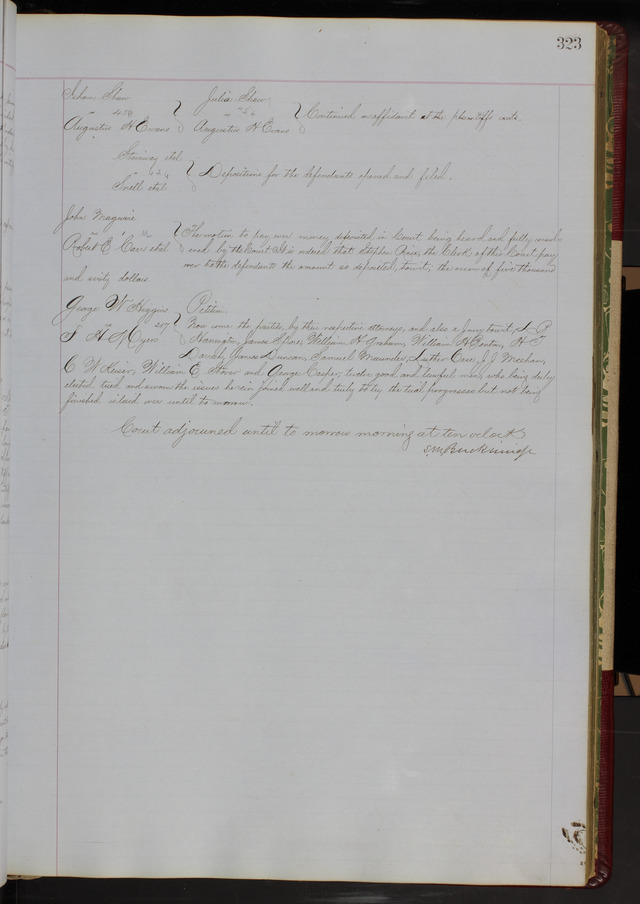 323
Isham Shaw } Julia Shaw } Continued on affidavit at the plaintiffs costs.
Augustus H Evans Augustus H Evans
Steinway etal } Depositions for the defendants opened and filed.
Snell etal
John Maguire } The motion to pay over money deposited in Court being heard and fully
Robert E Carr etal by the Court it is ordered that Stephen Rice, the Clerk of this Court pay
over to the defendants the amount so deposited, towit; the sum of five thousand
and sixty dollars
George W Higgins } Petition.
207 Now come the parties, by their respective attorneys, and also a Jury towit, L P
S H Harrington, James Spore, William H Graham, William H Fenton, H T
James Duncan, Samuel Maunder, Luther Case, J J Meehan,
C W Keiser, William E Stow and George Casper, twelve good and lawful men, who being duly
elected, tried and sworn the issues herein joined well and truly to try the trial progresses but not being
finished is laid over until to morrow.
Court adjourned until to morrow morning at ten oclock